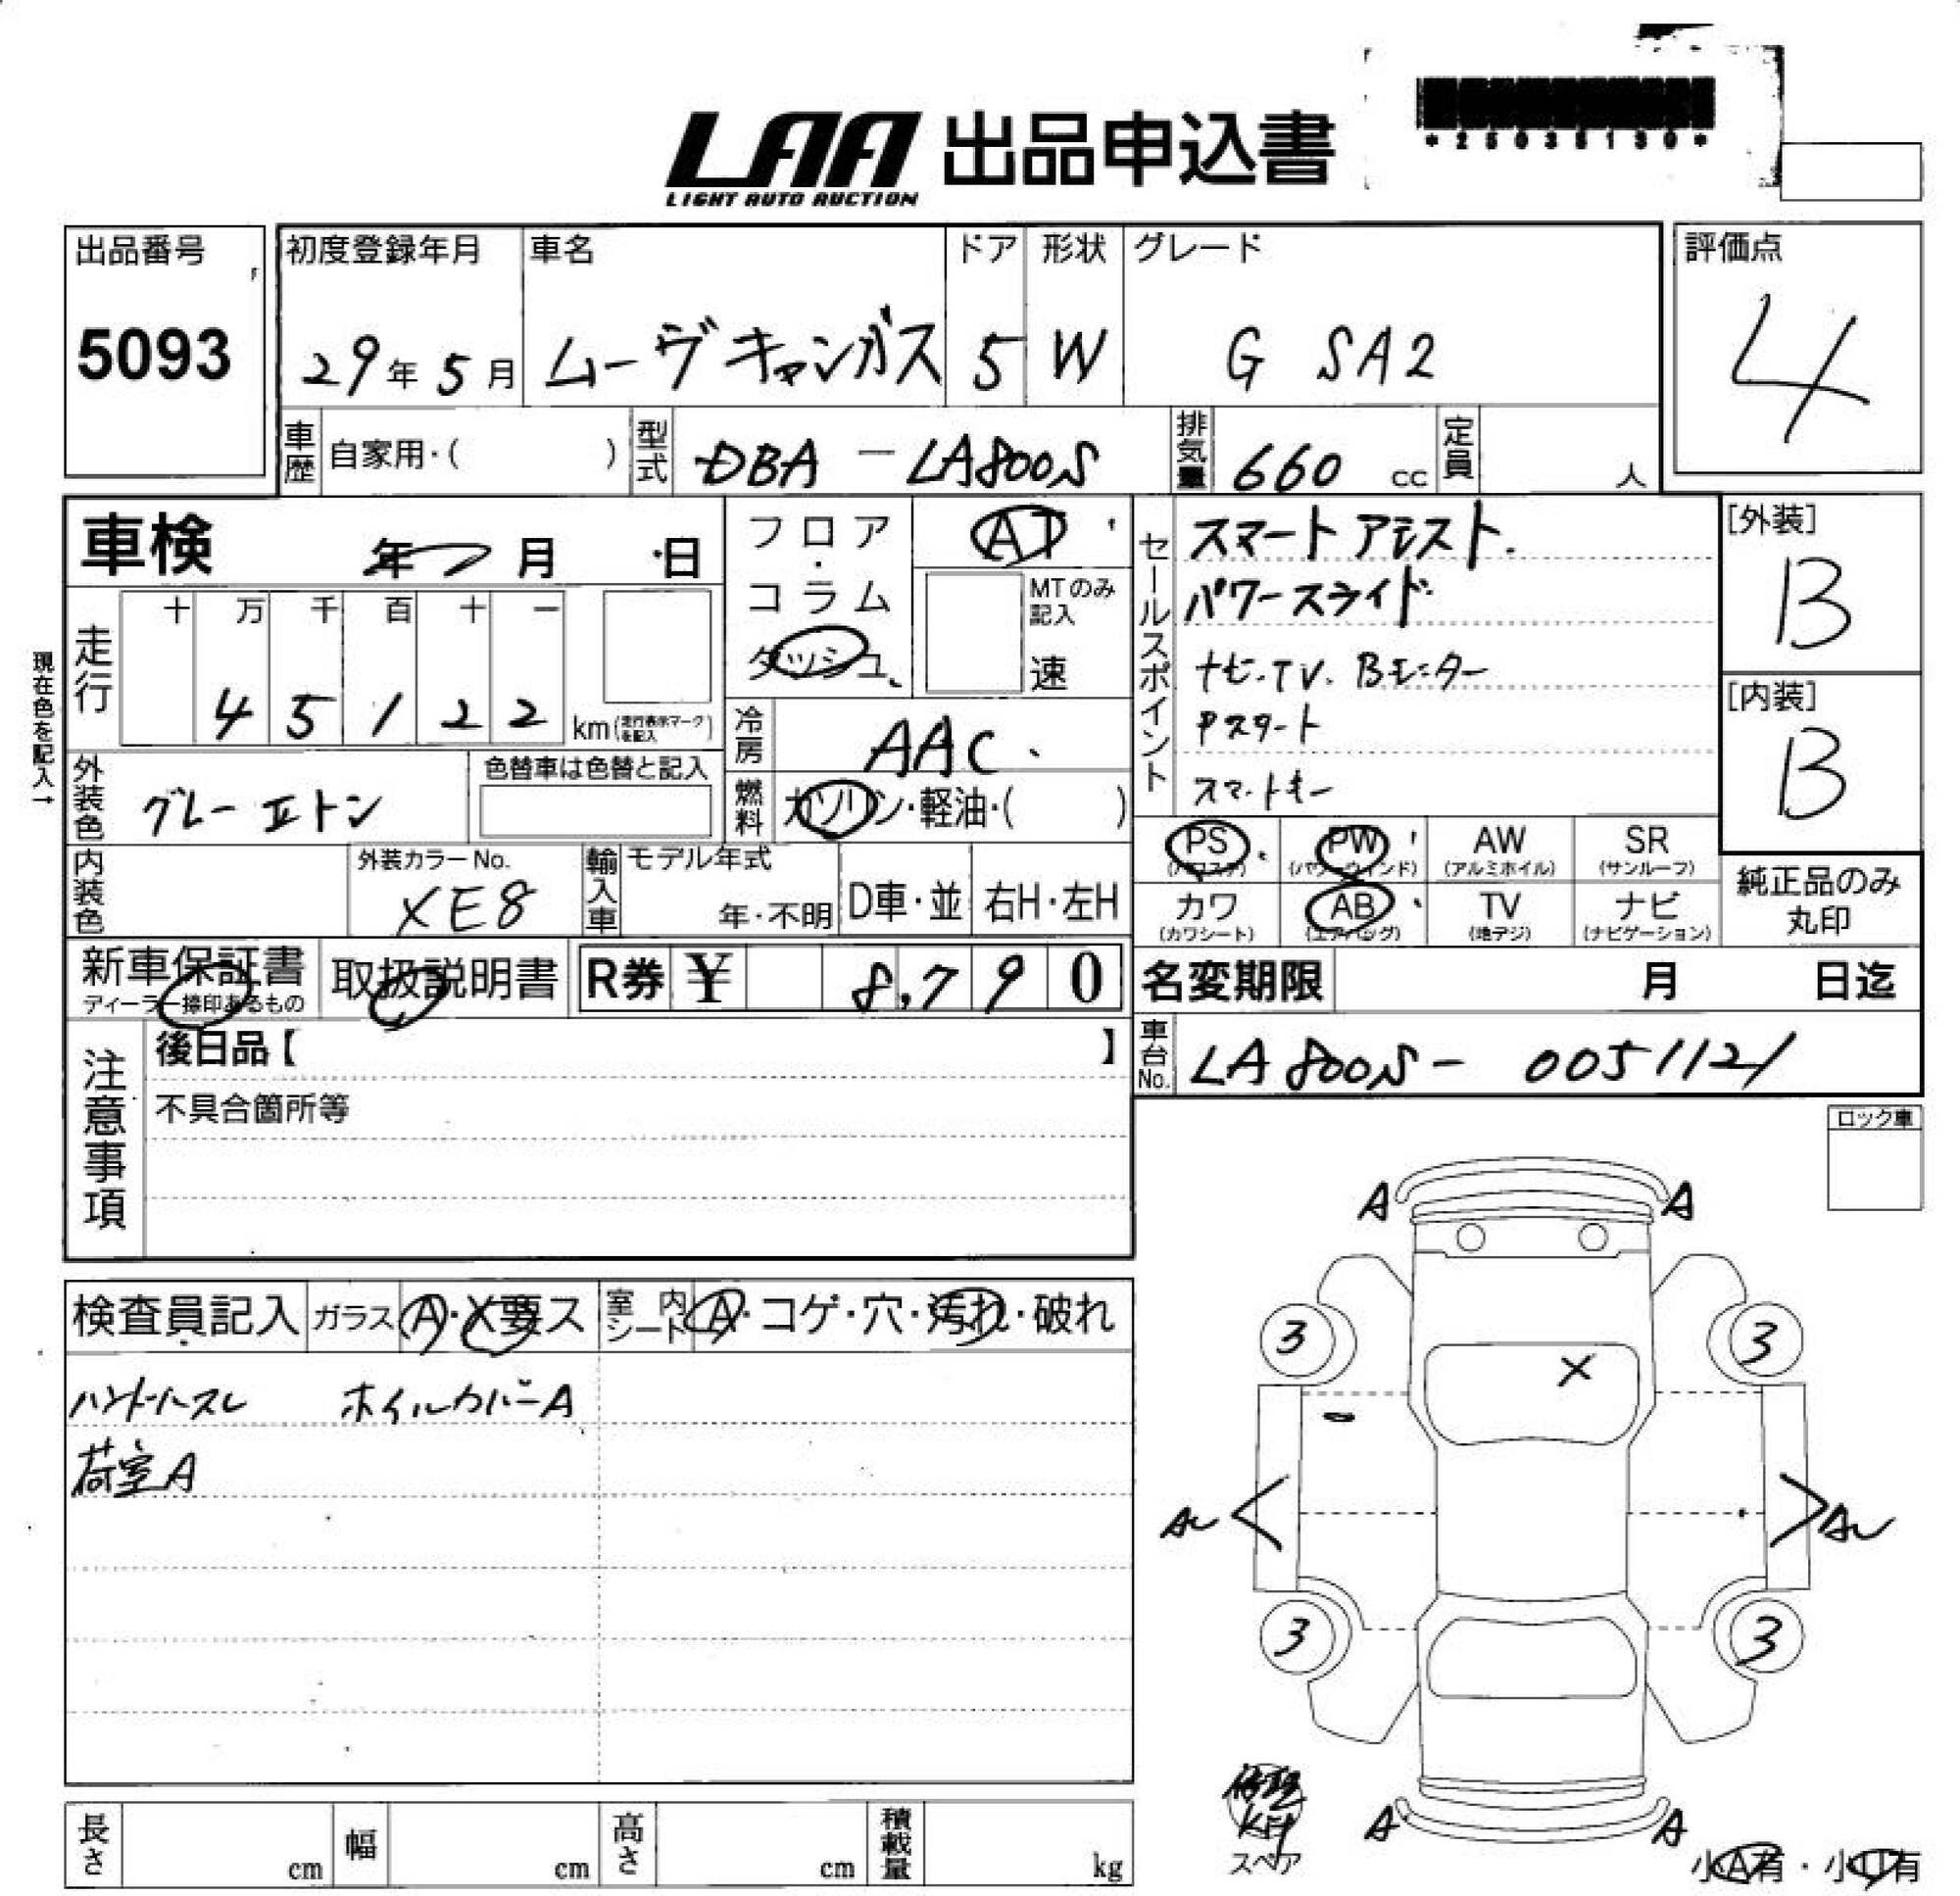 LAA 出品申込書
LIGHT AUTO AUCTION
*25035130*
出品番号
5093
初度登録年月
29年5月
車名
ムーヴキャンバス
ドア
5
形状
W
グレード
G SA2
評価点
4
車歴 自家用・( )
型式 DBA-LA800S
排気量 660 cc
定員 人
車検 年 月 日
フロア・コラム ダッシュ
AT
MTのみ記入
速
走行
十 万 千 百 十 一
45122 km (走行表示マークを記入)
現在色を記入→
外装色 グレーIIトン
色替車は色替と記入
冷房 AAC
燃料 ガソリン・軽油・( )
内装色
外装カラーNo.
XE8
輸入車 モデル年式
年・不明 D車・並 右H・左H
セールスポイント
スマートアシスト.
パワースライド
ナビ.TV. Bモニター
Pスタート
スマートキー
[外装]
B
[内装]
B
PS (パワステ) PW (パワーウィンド) AW (アルミホイル) SR (サンルーフ)
カワ (カワシート) AB (エアバッグ) TV (地デジ) ナビ (ナビゲーション)
純正品のみ丸印
新車保証書
ディーラー捺印あるもの
取扱説明書
R券 ¥ 8,790
名変期限 月 日迄
車台No. LA800S- 0051121
注意事項
後日品【 】
不具合箇所等
ロック車
検査員記入 ガラス A・X要ス 室内シート A・コゲ・穴・汚れ・破れ
ハンドルスレ ホイルカバーA
荷室A
A A
3 3
X
AU AU
3 3
A A
修理
スペア
小A有・小U有
長さ cm 幅 cm 高さ cm 積載量 kg